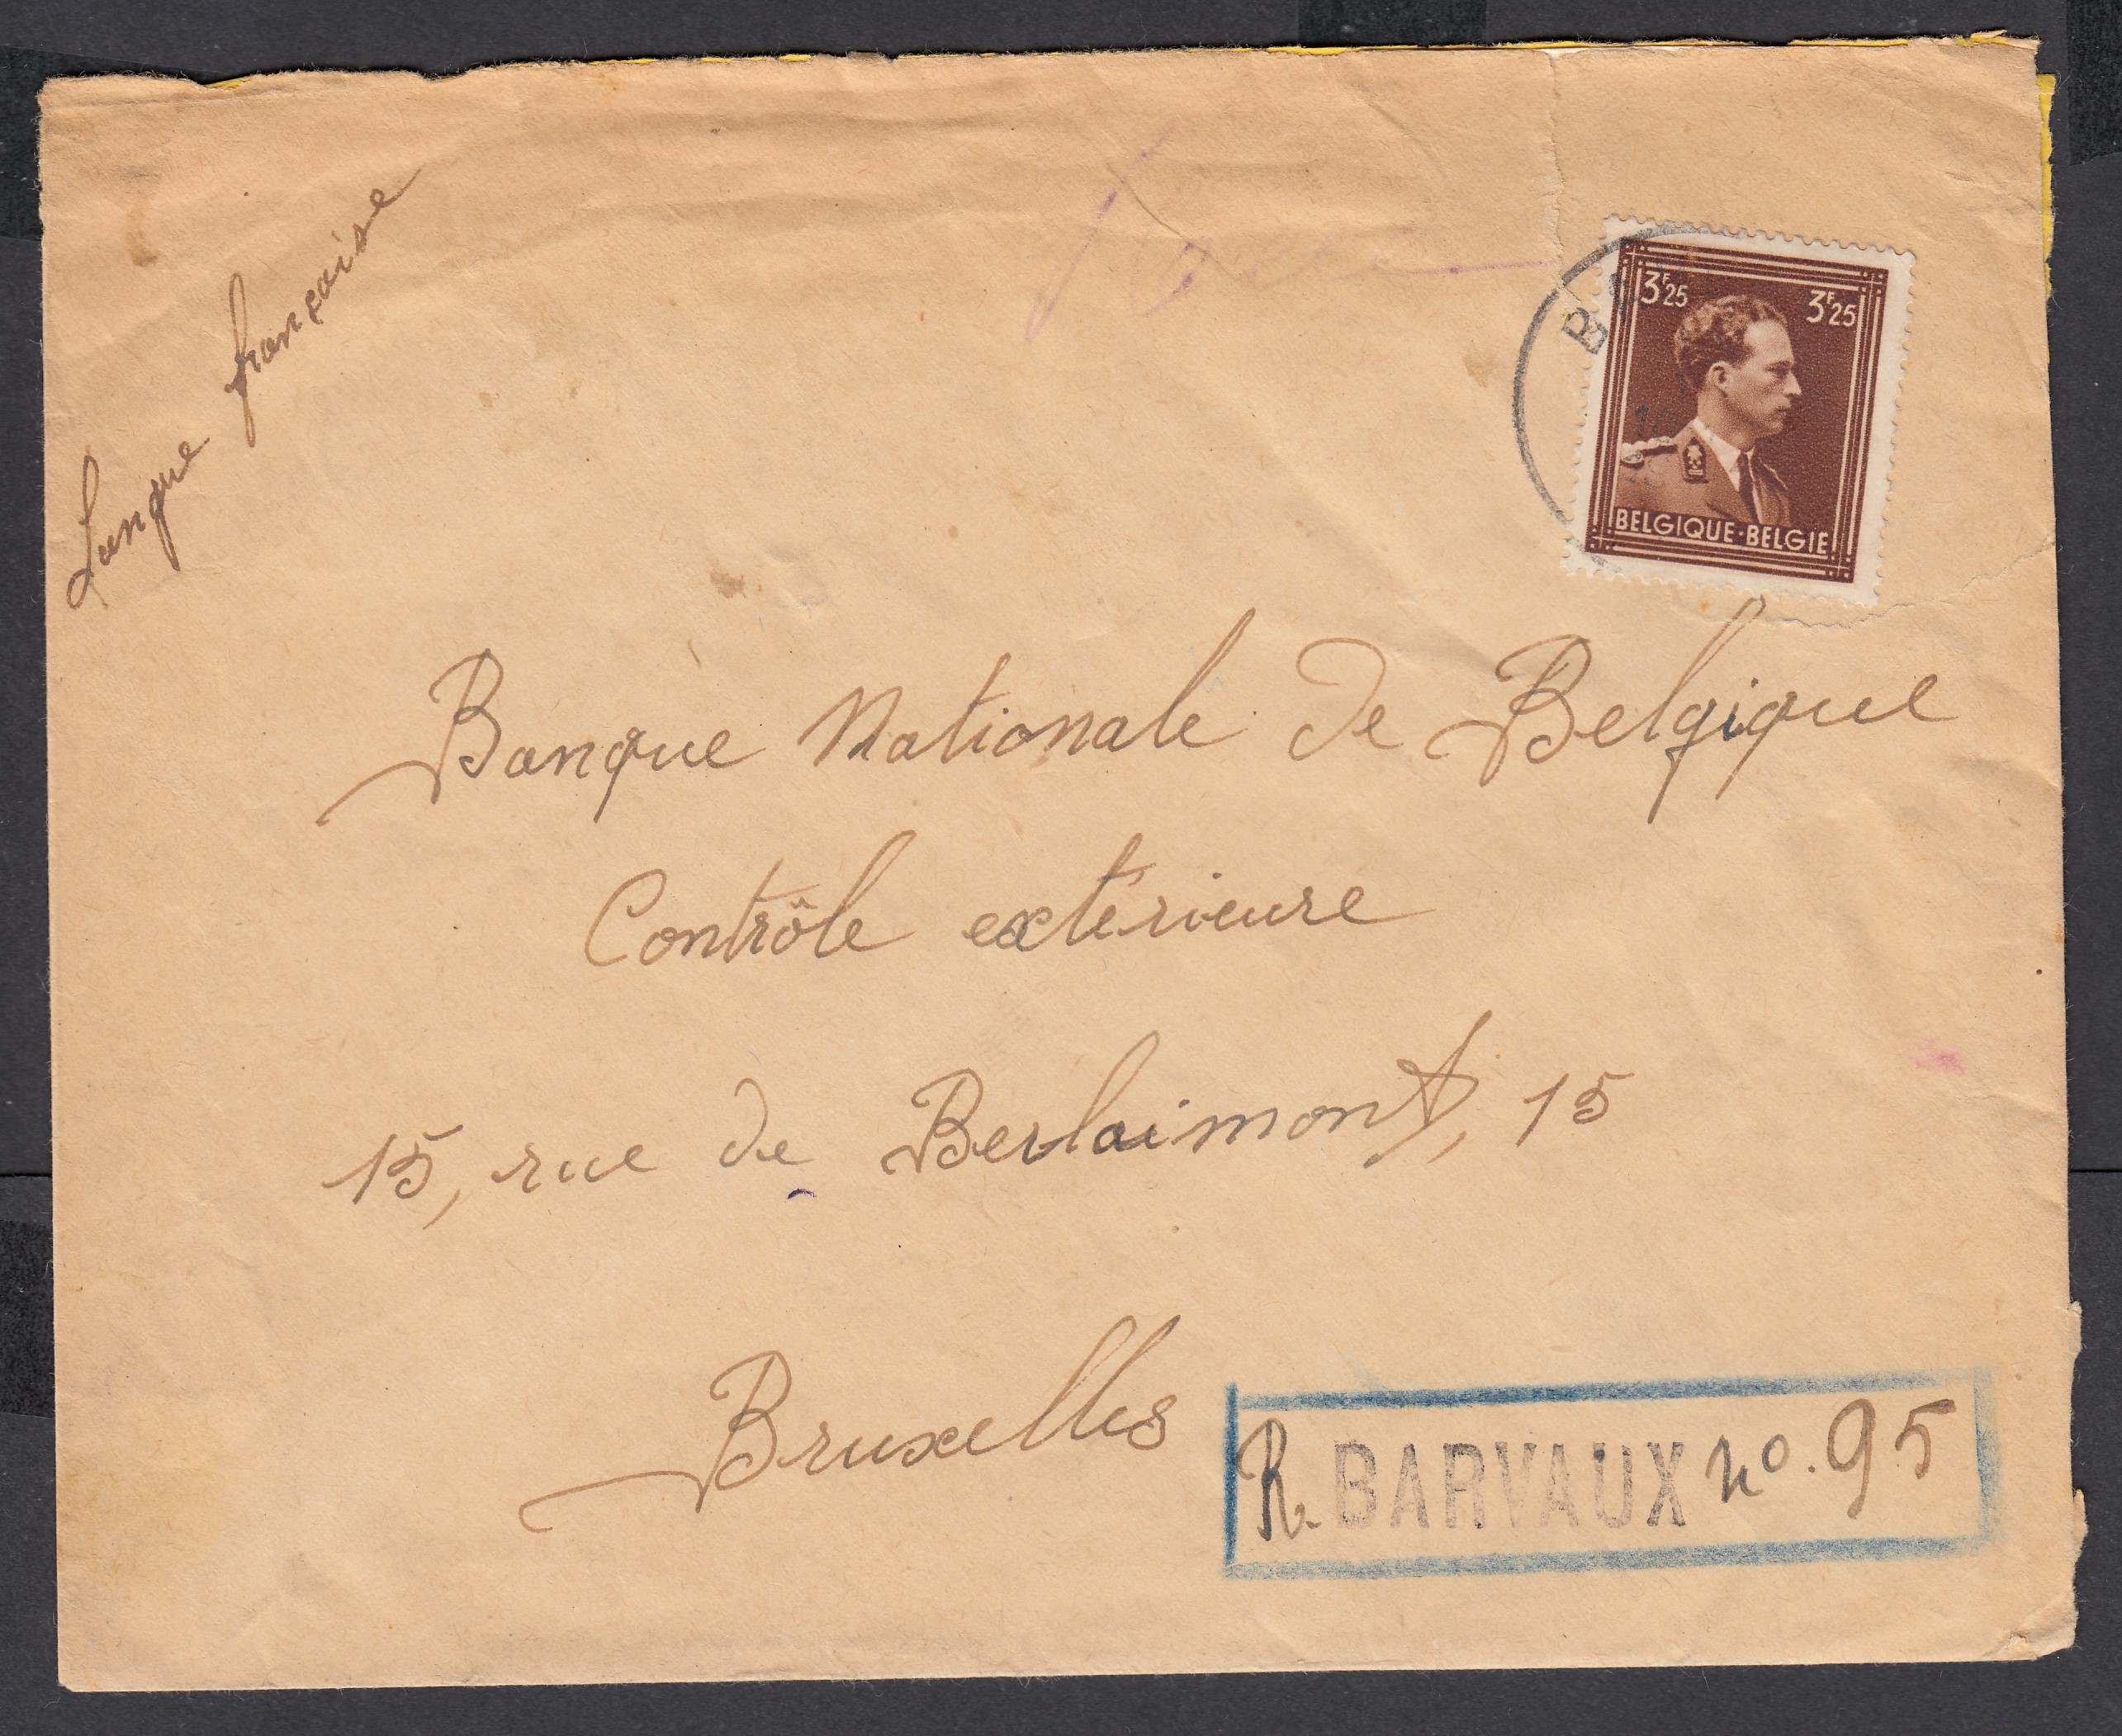 Langue française
3F25 3F25
BELGIQUE·BELGIE
Banque Nationale de Belgique
Contrôle extérieure
15, rue de Berlaimont, 15
Bruxelles
R. BARVAUX no. 95